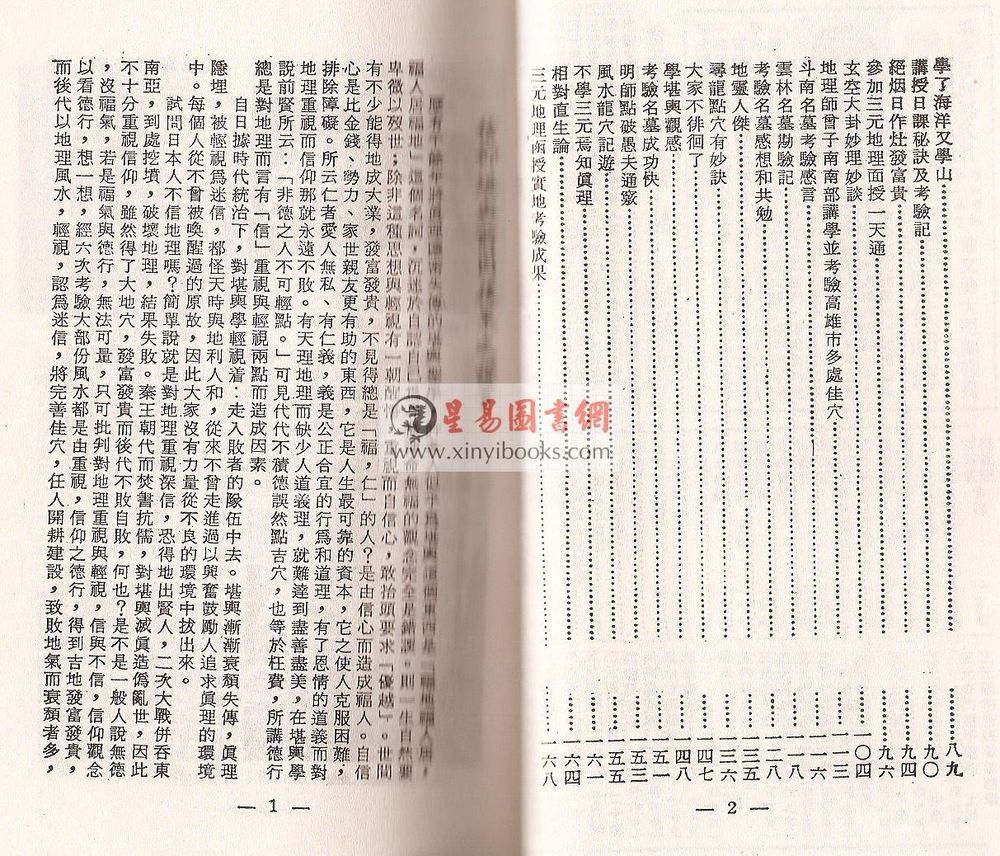 學了海洋又學山……八九
講授日課秘訣及考驗記……九〇
絕烟日作灶發富貴……九四
參加三元地理面授一天通……九六
玄空大卦妙理妙談……一〇四
地理師曾子南南部講學並考驗高雄市多處佳穴……一一三
斗南名墓考驗感言……一一六
雲林名墓勘驗記……一一八
考驗名墓感想和共勉……一二八
地靈人傑……一三一
尋龍點穴有妙訣……一三六
大家不徘徊了……一四七
學堪輿觀感……一四八
考驗名墓成功快……一五一
明師點破愚夫通竅……一五三
風水龍穴記遊……一五五
不學三元焉知眞理……一六一
相對直生論……一六四
三元地理函授實地考驗成果……一六八
— 2 —
福人居福地」這個名詞,沉迷於自謂自己
無福的觀念完全是錯誤。則一生自然要
卑微以歿世;除非這種思想與輕視有一朝醒悟
重視而自信心,敢抬頭要求「優越」。世間
有不少能得地成大業,發富發貴,不見得總是「福,仁」的人?是由信心而造成福人。自信
心是比金錢、勢力、家世親友更有助的東西,它是人生最可靠的資本,它之使人克服困難,
排除障礙。所云仁者愛人無私、有仁義,義是公正合宜的行爲和道理,有了恩情的道義而對
地理重視而信仰那就永遠不敗。有天理地理而缺少人道義理,就難達到盡善盡美,在堪輿學
說前賢所云:「非德之人不可輕點。」可見代代不積德誤然點吉穴,也等於枉費,所講德行
總是對地理而言有「信」重視與輕視兩點而造成因素。
自日據時代統治下,對堪輿學輕視着:走入敗者的隊伍中去。堪輿漸漸衰頹失傳,眞理
隱埋,被輕視爲迷信,都怪天時與地利人和,從來不曾走進過以興奮鼓勵人追求眞理的環境
中。每個人從不曾被喚醒過的原故,因此大家沒有力量從不良的環境中拔出來。
試問日本人不信地理嗎?簡單說就是對地理重視深信,恐得地出賢人,二次大戰併吞東
南亞,到處挖墳,破壞地理,結果失敗。秦王朝代而焚書抗儒,對堪輿滅眞造僞亂世,因此
不十分重視信仰,雖然得了大地穴,發富發貴而後代不敗自敗,何也?是不是一般人說無德
,沒福氣,若是福氣與德行,無法可量,只可批判對地理重視與輕視,信與不信,信仰觀念
以看德行,想一想,經六次考驗大部份風水都是由重視,信仰之德行,得到吉地發富發貴,
而後代以地理風水,輕視,認爲迷信,將完善佳穴,任人開耕建設,致敗地氣而衰頹者多,
— 1 —
星易圖書網
www.xinyibooks.com